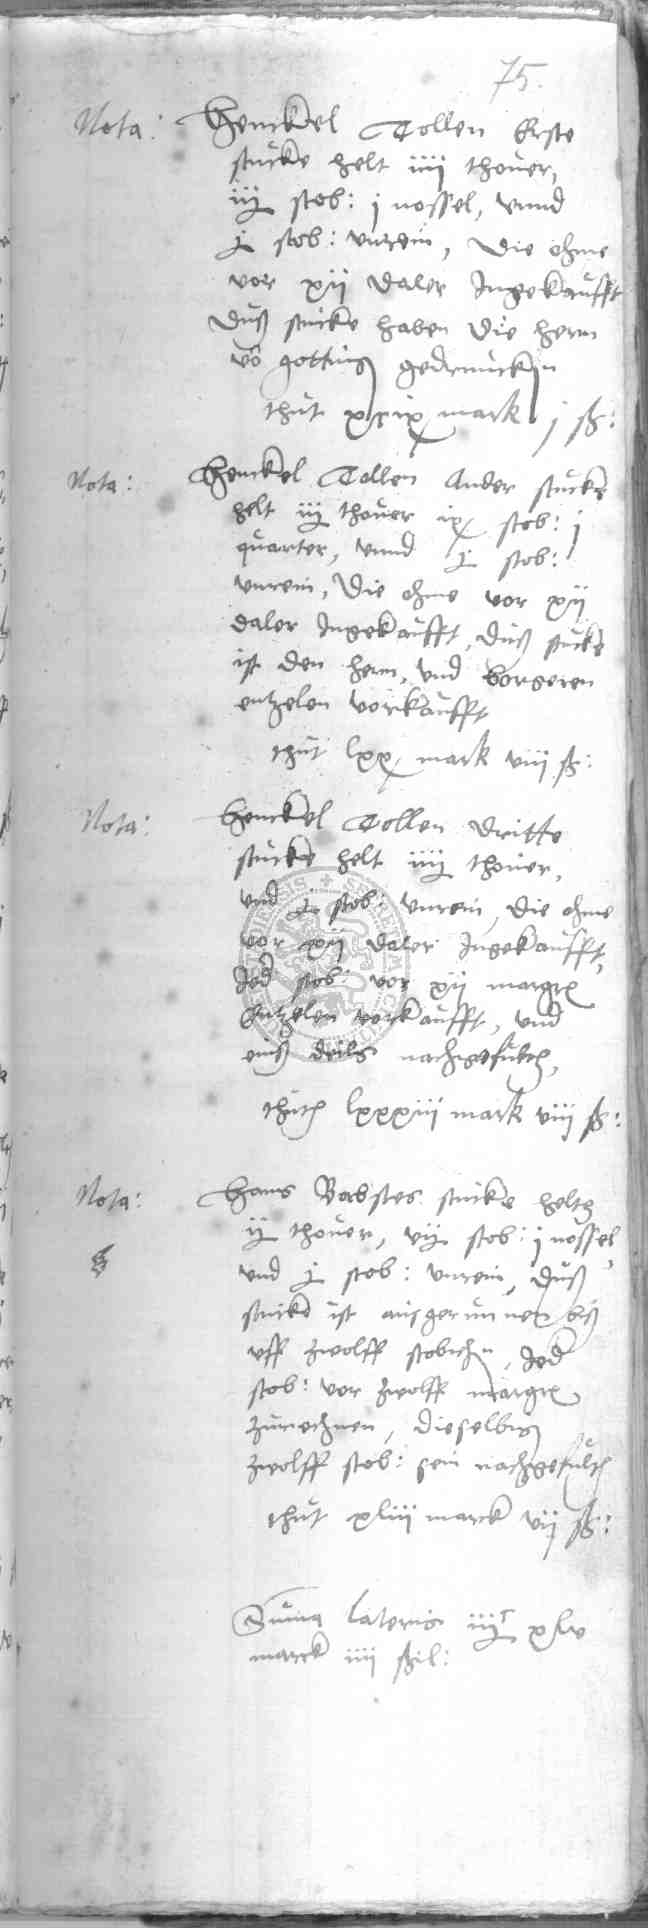 75.
Nota: Henckel Tollen Erste
stucke helt iiii thover,
iij stob: j nossel, vnnd
j stob: vnrein, Die ohme
vor xij daler Ingekaufft
Duß stucke haben die hern
vô gotting gedruncken
thut xxix mark j ß:
Nota: Henckel Tollen Ander stucke
helt iij thover ix stob: j
quarter, vnnd j stob:
vnrein, Die ohme vor xij
daler Ingekaufft, Duß stucke
ist den hern, vnd borgeren
entzelen vorkaufft
thut lxx mark viii ß:
Nota: Henckel Tollen Dritte
stucke helt iiii thover,
vnd j stob: vnrein, die ohme
vor xij daler Ingekaufft,
Jed stob: vor xij margr
Entzelen vorkaufft, vnd
eins deils nachgefult,
thut lxxxiii mark viii ß:
Nota: Hans Babstes stucke helt
ij thover, vij stob: j nossel,
vnd j stob: vnrein, Duß
stucke ist ausgerunnen biß
vff zwolff stobchn, Jed
stob: vor zwolff margr
zurechnen, dieselbig
zwolff stob: sein nachgefult
thut xliii marck vij ß:
Suma lateris iijc xlv
marck iiii ßil: